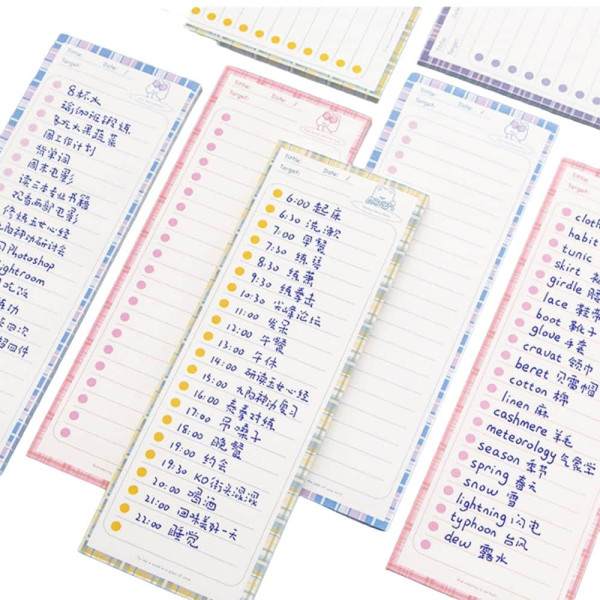 Title: Date: /
Target:
8杯水
瑜伽班锻炼
多吃水果蔬菜
周工作计划
背单词
周末电影
读三本专业书籍
观看两部电影
修炼玉女心经
神功研讨会
习Photoshop
ightroom
练功
Title: Date: /
Target:
Title: Date: /
Target:
6:00 起床
6:30 洗漱
7:00 早餐
7:30 练
8:30 练
9:30 练拳击
10:30 尖峰论坛
11:00 发呆
12:00 午餐
13:00 午休
14:00 研读玉女心经
15:00 九阳神功复习
16:00 对练
17:00 吊嗓子
18:00 晚餐
19:00 约会
19:30 KO街头混混
20:00 喝酒
21:00 回味美好一天
22:00 睡觉
Title: Date: /
Target:
Title:
Target:
Title:
Target:
cloth
habit
tunic
skirt
girdle
lace 鞋带
boot 靴子
glove 手套
cravat 领巾
beret 贝雷帽
cotton 棉
linen 麻
cashmere 羊毛
meteorology 气象学
season 季节
spring 春天
snow 雪
lightning 闪电
typhoon 台风
dew 露水